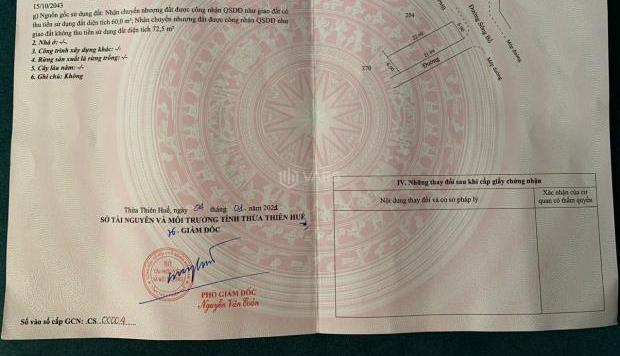 15/10/2043
g) Nguồn gốc sử dụng đất: Nhận chuyển nhượng đất được công nhận QSDĐ như giao đất có
thu tiền sử dụng đất diện tích 60,0 m²; Nhận chuyển nhượng đất được công nhận QSDĐ như
giao đất không thu tiền sử dụng đất diện tích 72,5 m²
2. Nhà ở: -/-
3. Công trình xây dựng khác: -/-
4. Rừng sản xuất là rừng trồng: -/-
5. Cây lâu năm: -/-
6. Ghi chú: Không
Thừa Thiên Huế, ngày 04 tháng 01 năm 2021
SỞ TÀI NGUYÊN VÀ MÔI TRƯỜNG TỈNH THỪA THIÊN HUẾ
GIÁM ĐỐC
PHÓ GIÁM ĐỐC
Nguyễn Văn
Số vào sổ cấp GCN: CS 00004
254
270
Đường
Đường Sông Bồ
Mép đường
Mép đường
IV. Những thay đổi sau khi cấp giấy chứng nhận
Nội dung thay đổi và cơ sở pháp lý
Xác nhận của cơ
quan có thẩm quyền